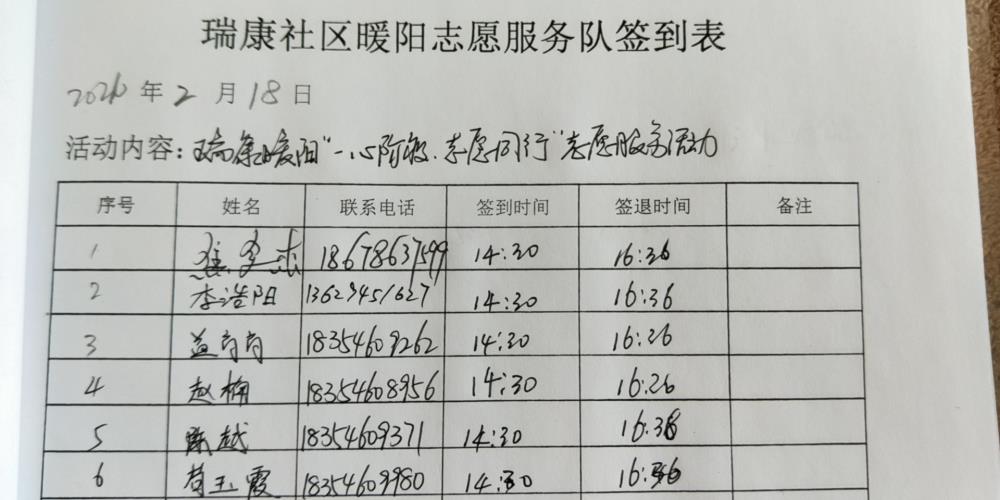 瑞康社区暖阳志愿服务队签到表
年2月18日
活动内容：瑞康暖阳"一心阶级、志愿同行"志愿服务活动
序号 姓名 联系电话 签到时间 签退时间 备注
1 18678637599 14:30 16:36
2 李浩阳 13629451627 14:30 16:36
3 18354609262 14:30 16:36
4 赵楠 18354608956 14:30 16:26
5 陈越 18354609371 14:30 16:38
6 苟玉霞 18354609980 14:30 16:36